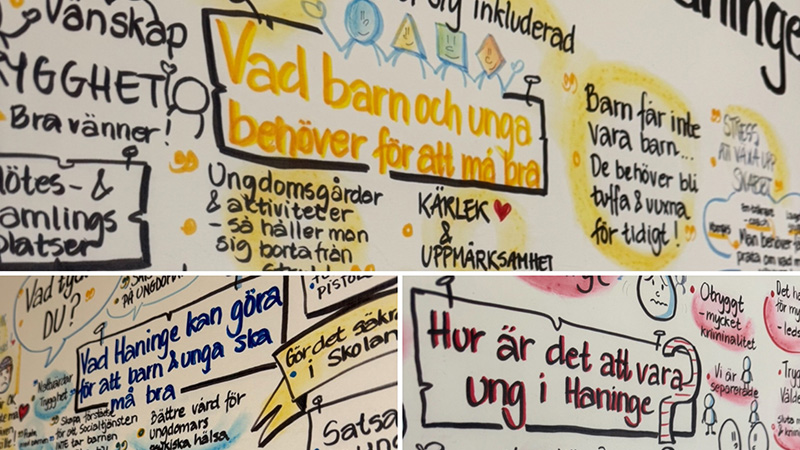 Vänskap
inkluderad
TRYGGHET
Bra vänner!
Vad barn och unga
behöver för att må bra
Ungdomsgårdar
& aktiviteter
- så håller man
sig borta från
KÄRLEK
&
UPPMÄRKSAMHET
Barn får inte
vara barn...
De behöver bli
tuffa & vuxna
för tidigt!
STRESS
ATT VÄXA UPP
SNABBT
Man behöver
prata om
Mötes- &
samlings
platser
Vad
DU?
PÅ
Vad Haninge kan göra
för att barn & unga ska
må bra
Trygghet
Skapa
för att Socialtjänsten
INTE tar barnen
Bättre vård för
ungdomars
psykiska hälsa
PISTOL
Gör det säkra
i Skolan
Satsa
Hur är det att vara
ung i Haninge
Otryggt
- mycket
kriminalitet
Vi är
separerade
Det
för